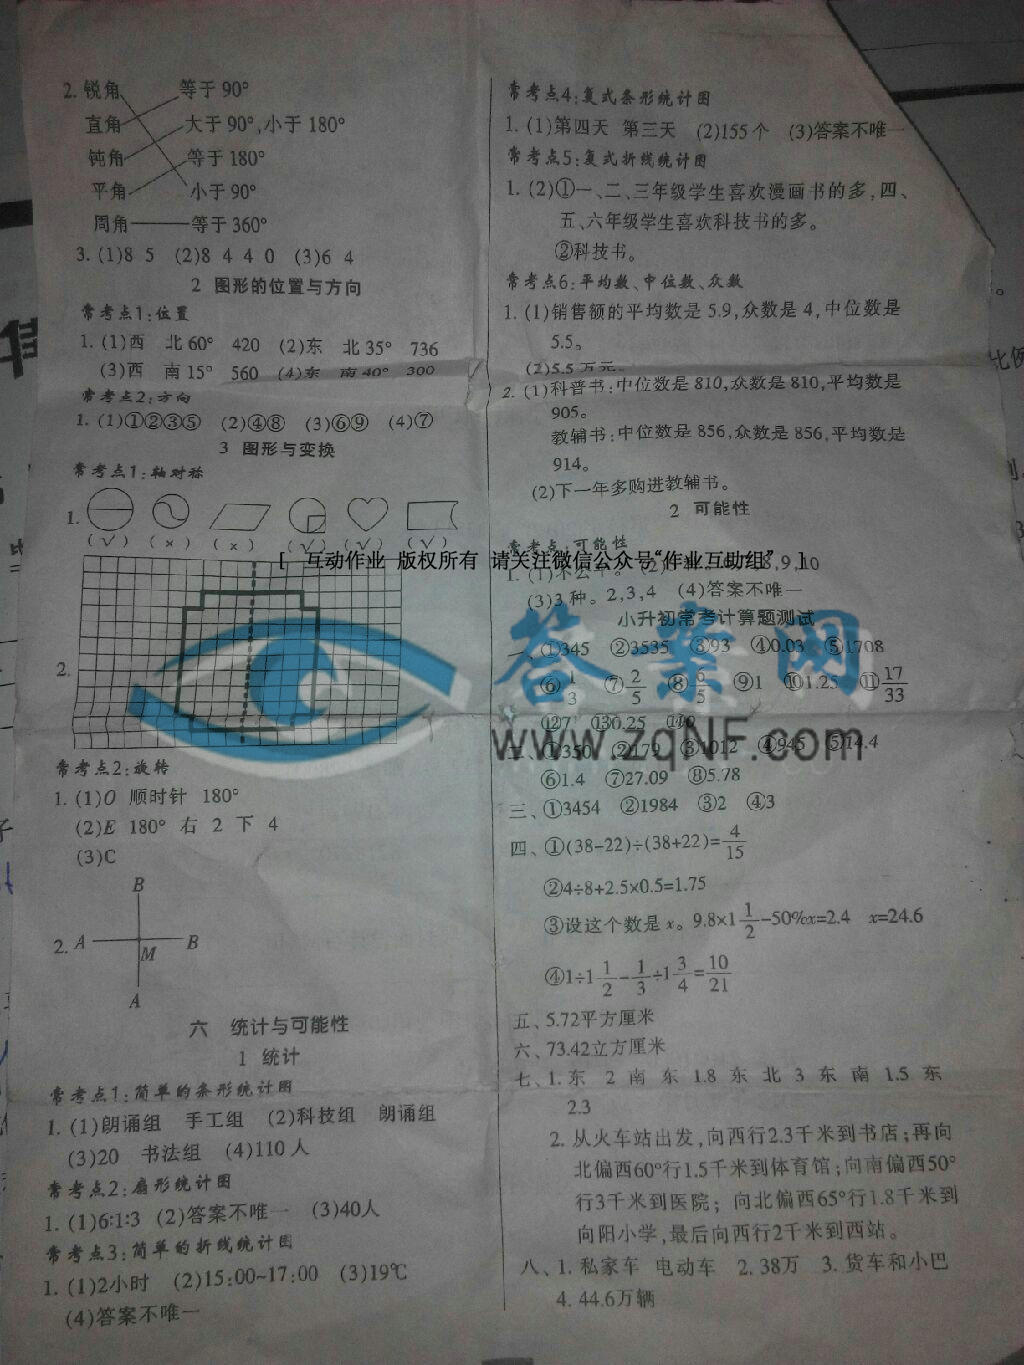 2. 锐角 等于 90°
直角 大于 90°,小于 180°
钝角 等于 180°
平角 小于 90°
周角 等于 360°
3. (1)8 5 (2)8 4 4 0 (3)6 4
2 图形的位置与方向
常考点1:位置
1. (1)西 北 60° 420 (2)东 北 35° 736
(3)西 南 15° 560 (4)东 南 40° 300
常考点2:方向
1. (1)①②③⑤ (2)④⑧ (3)⑥⑨ (4)⑦
3 图形与变换
常考点1:轴对称
1.
(√) (×) (×) (√) (√) (√)
2.
常考点2:旋转
1. (1)O 顺时针 180°
(2)E 180° 右 2 下 4
(3)C
B
2. A B
M
A
六 统计与可能性
1 统计
常考点1:简单的条形统计图
1. (1)朗诵组 手工组 (2)科技组 朗诵组
(3)20 书法组 (4)110 人
常考点2:扇形统计图
1. (1)6:1:3 (2)答案不唯一 (3)40人
常考点3:简单的折线统计图
1. (1)2小时 (2)15:00~17:00 (3)19℃
(4)答案不唯一
常考点4:复式条形统计图
1. (1)第四天 第三天 (2)155个 (3)答案不唯一
常考点5:复式折线统计图
1. (2)①一、二、三年级学生喜欢漫画书的多,四、
五、六年级学生喜欢科技书的多。
②科技书。
常考点6:平均数、中位数、众数
1. (1)销售额的平均数是 5.9,众数是 4,中位数是
5.5。
(2)5.5 万元。
2. (1)科普书:中位数是 810,众数是 810,平均数是
905。
教辅书:中位数是 856,众数是 856,平均数是
914。
(2)下一年多购进教辅书。
2 可能性
常考点:可能性
[ 互动作业 版权所有 请关注微信公众号“作业互助组” ]
1. (1)不公平。 8,9,10
(3)3 种。2,3,4 (4)答案不唯一
小升初常考计算题测试
答案网
www.zqNF.com
一、①345 ②3535 ③93 ④0.03 ⑤1708
⑥1/3 ⑦2/5 ⑧6/5 ⑨1 ⑩1.25 ⑪17/33
⑫7 ⑬0.25 ⑭0
二、①350 ②179 ③1012 ④945 ⑤14.4
⑥1.4 ⑦27.09 ⑧5.78
三、①3454 ②1984 ③2 ④3
四、①(38-22)÷(38+22)=4/15
②4÷8+2.5×0.5=1.75
③设这个数是 x。9.8×1 1/2-50%x=2.4 x=24.6
④1÷1 1/2-1/3÷1 3/4=10/21
五、5.72平方厘米
六、73.42立方厘米
七、1. 东 2 南 东 1.8 东 北 3 东 南 1.5 东
2.3
2. 从火车站出发,向西行2.3千米到书店;再向
北偏西60°行1.5千米到体育馆;向南偏西50°
行3千米到医院; 向北偏西65°行1.8千米到
向阳小学,最后向西行2千米到西站。
八、1. 私家车 电动车 2. 38万 3. 货车和小巴
4. 44.6万辆